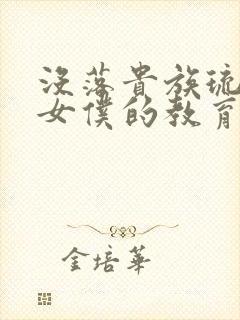 没落貴族琉
女僕的教育
金培華